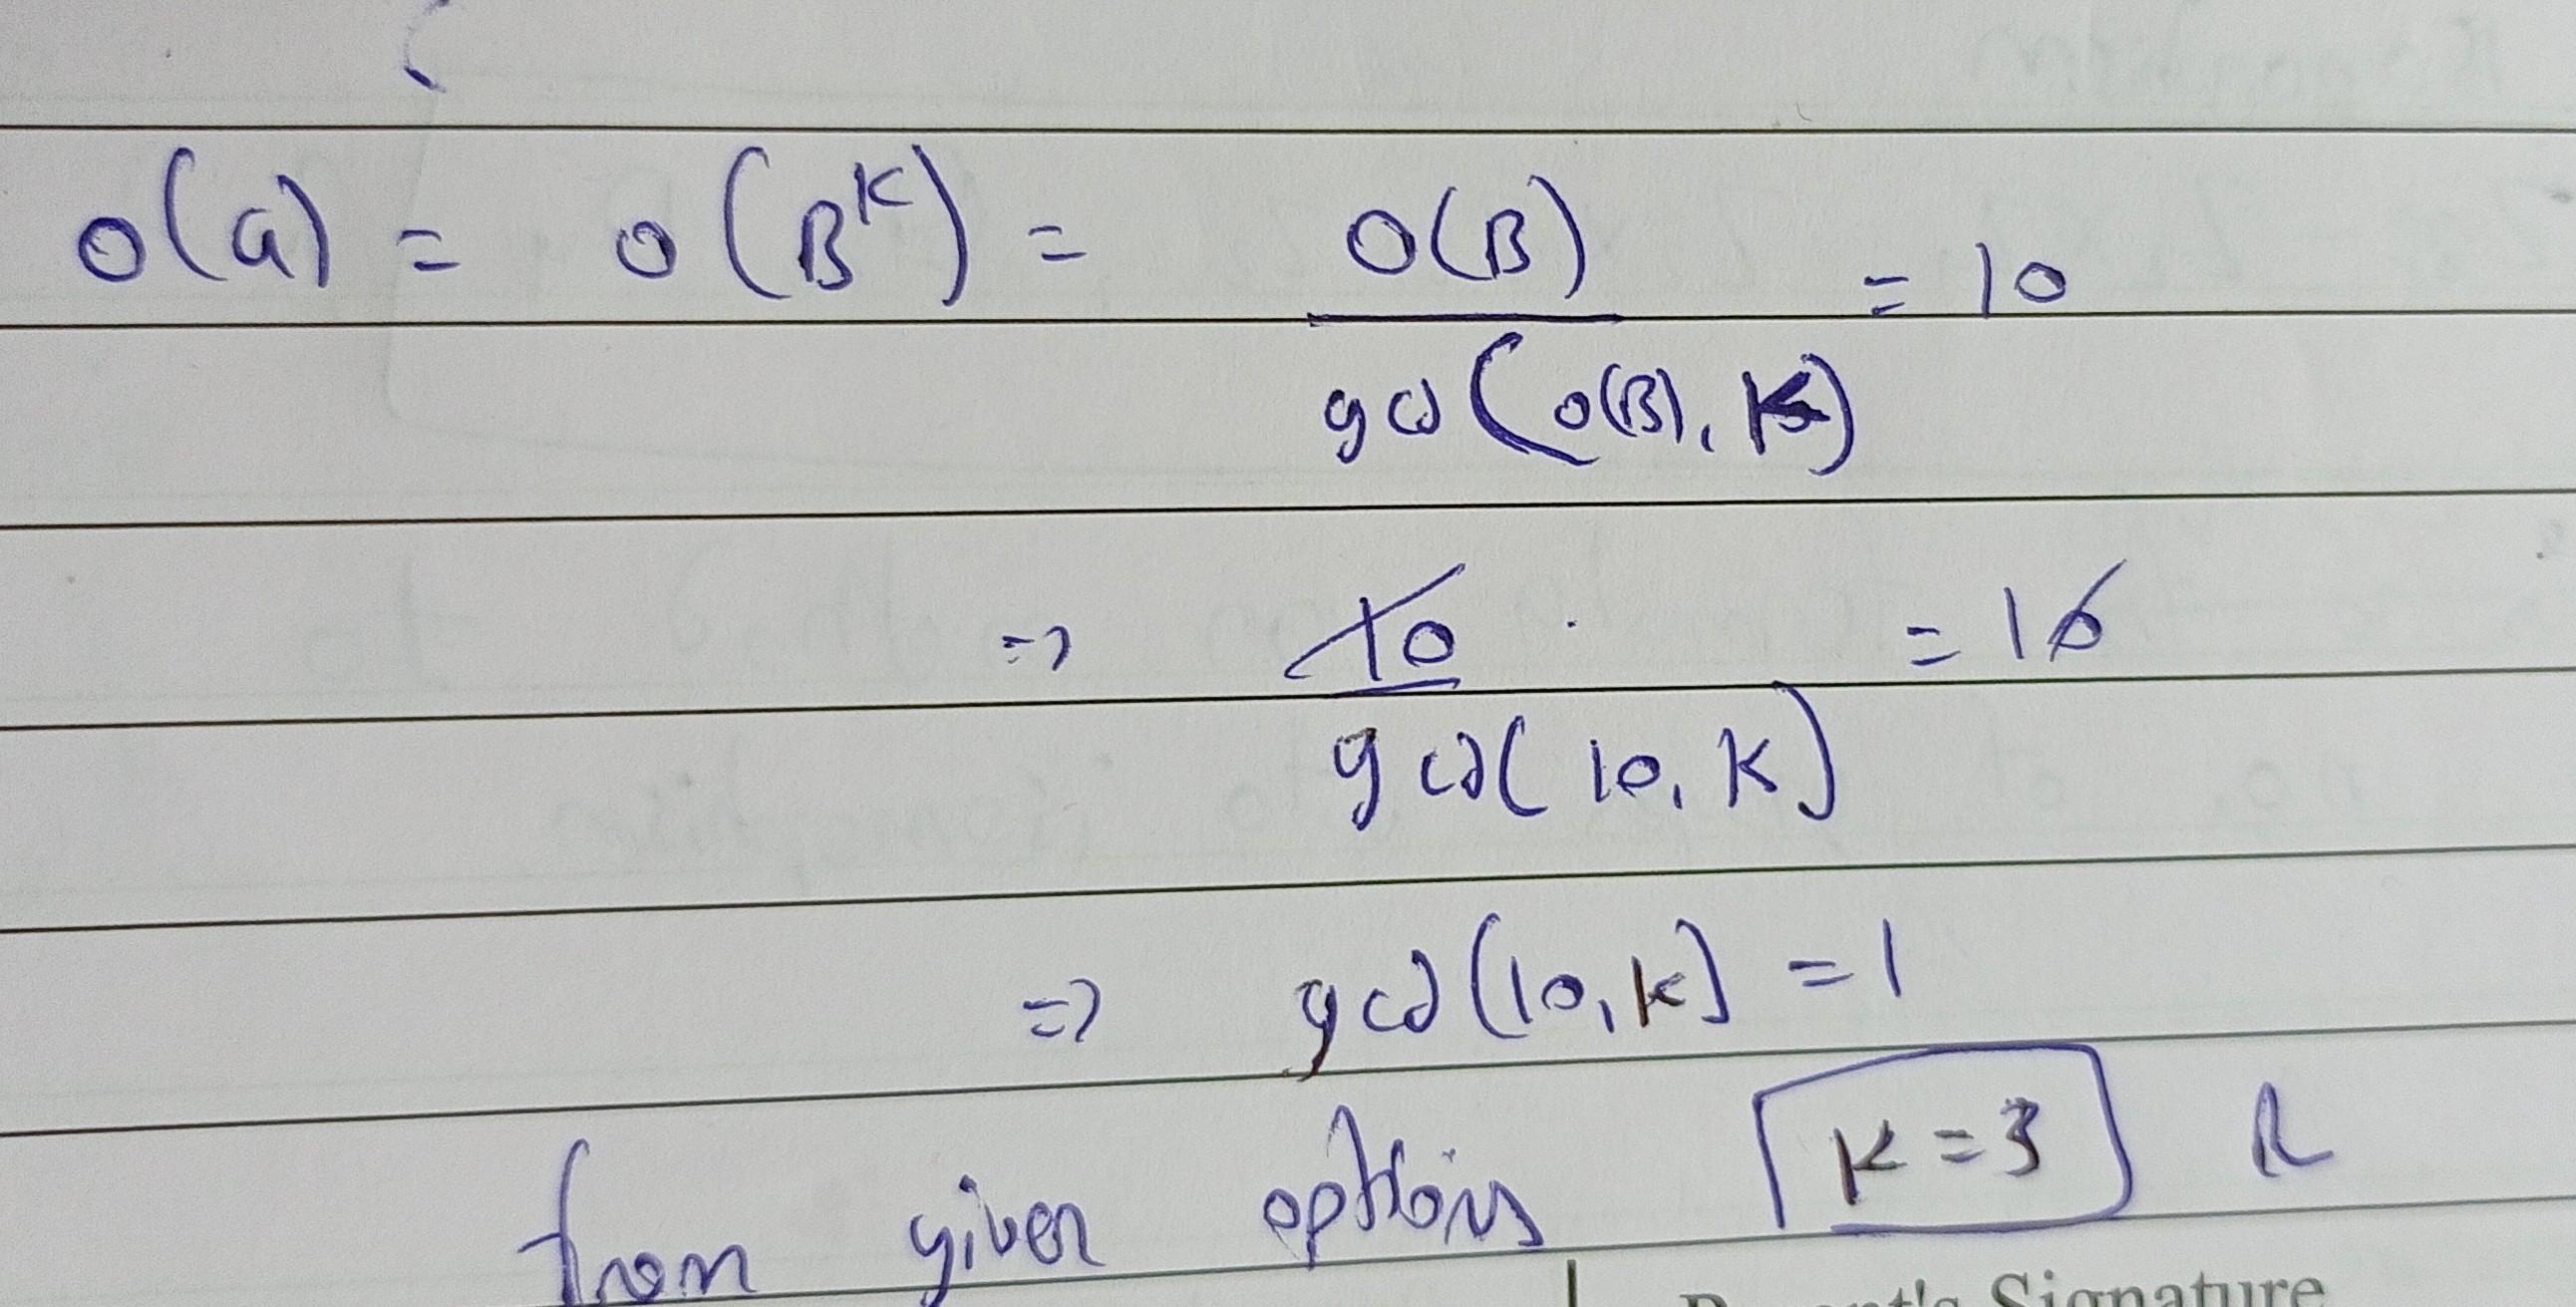 o(a) = o(B^K) = O(B) / gcd(o(B), K) = 10
=> 10 / gcd(10, K) = 10
=> gcd(10, K) = 1
from given options K = 3
Signature